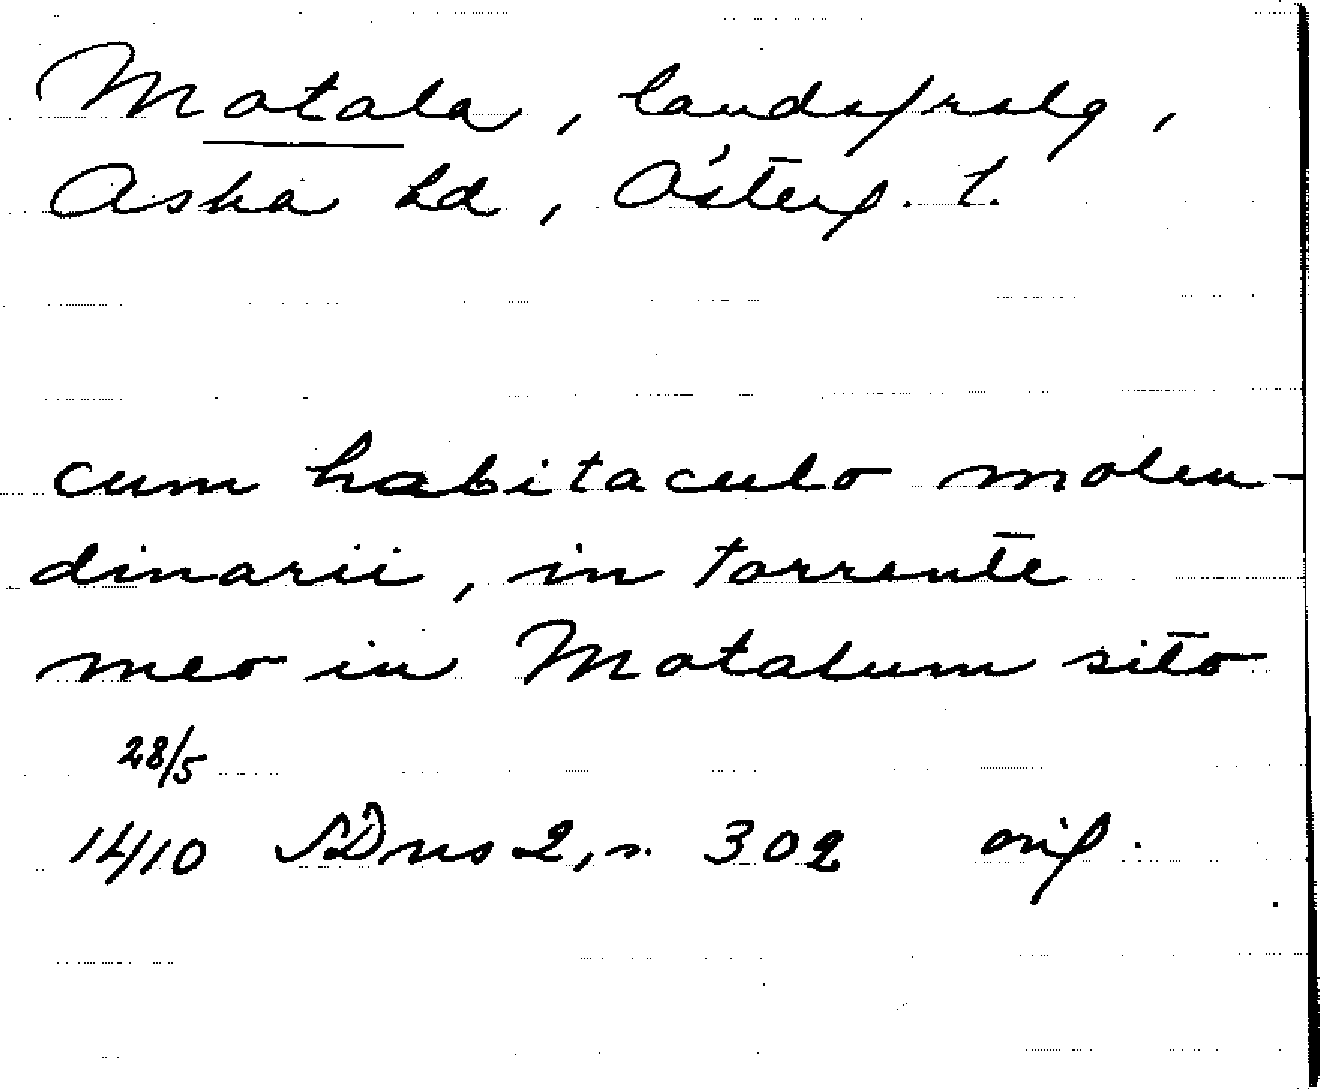 Motala, landsfrslg,
Aska hd, Österg. l.
cum habitaculo molen-
dinarii, in torrente
meo in Motalum sito
28/5
1410 SDns 2, s. 302 orig.